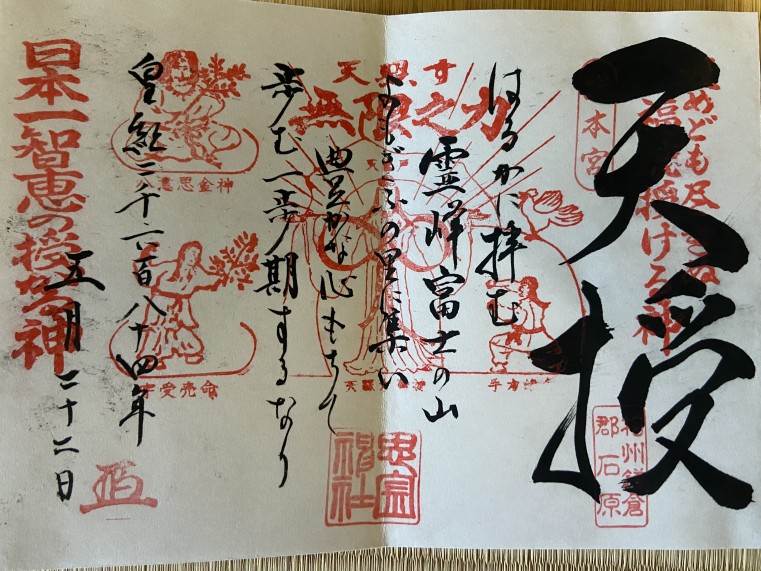 天授
本宮
めども尽きぬ
授ける神
州鎌倉
郡石原
はるかに拝む
霊峰富士の山
よもぎふの里に集い
豊かな心もちて
歩む一歩期するなり
天照す
無限之力
思金
神社
皇紀二千六百八十四年
五月二十二日
意思金神
受売命
日本一智恵の授かる神